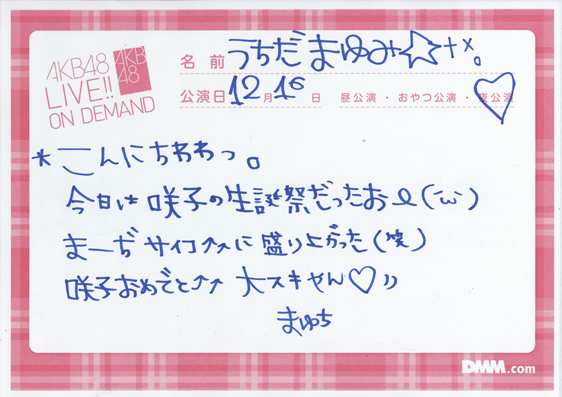 AKB48
LIVE!!
ON DEMAND
AKB
48
名前 うちだまゆみ☆+×。
公演日 12月16日 昼公演・おやつ公演・夜公演
*こんにちわわっ。
今日は咲子の生誕祭だったお(・ω・)
まーぢサイコ↑↑に盛り上がった(笑)
咲子おめでと↑↑ 大スキやん♡))
まゆち
DMM.com